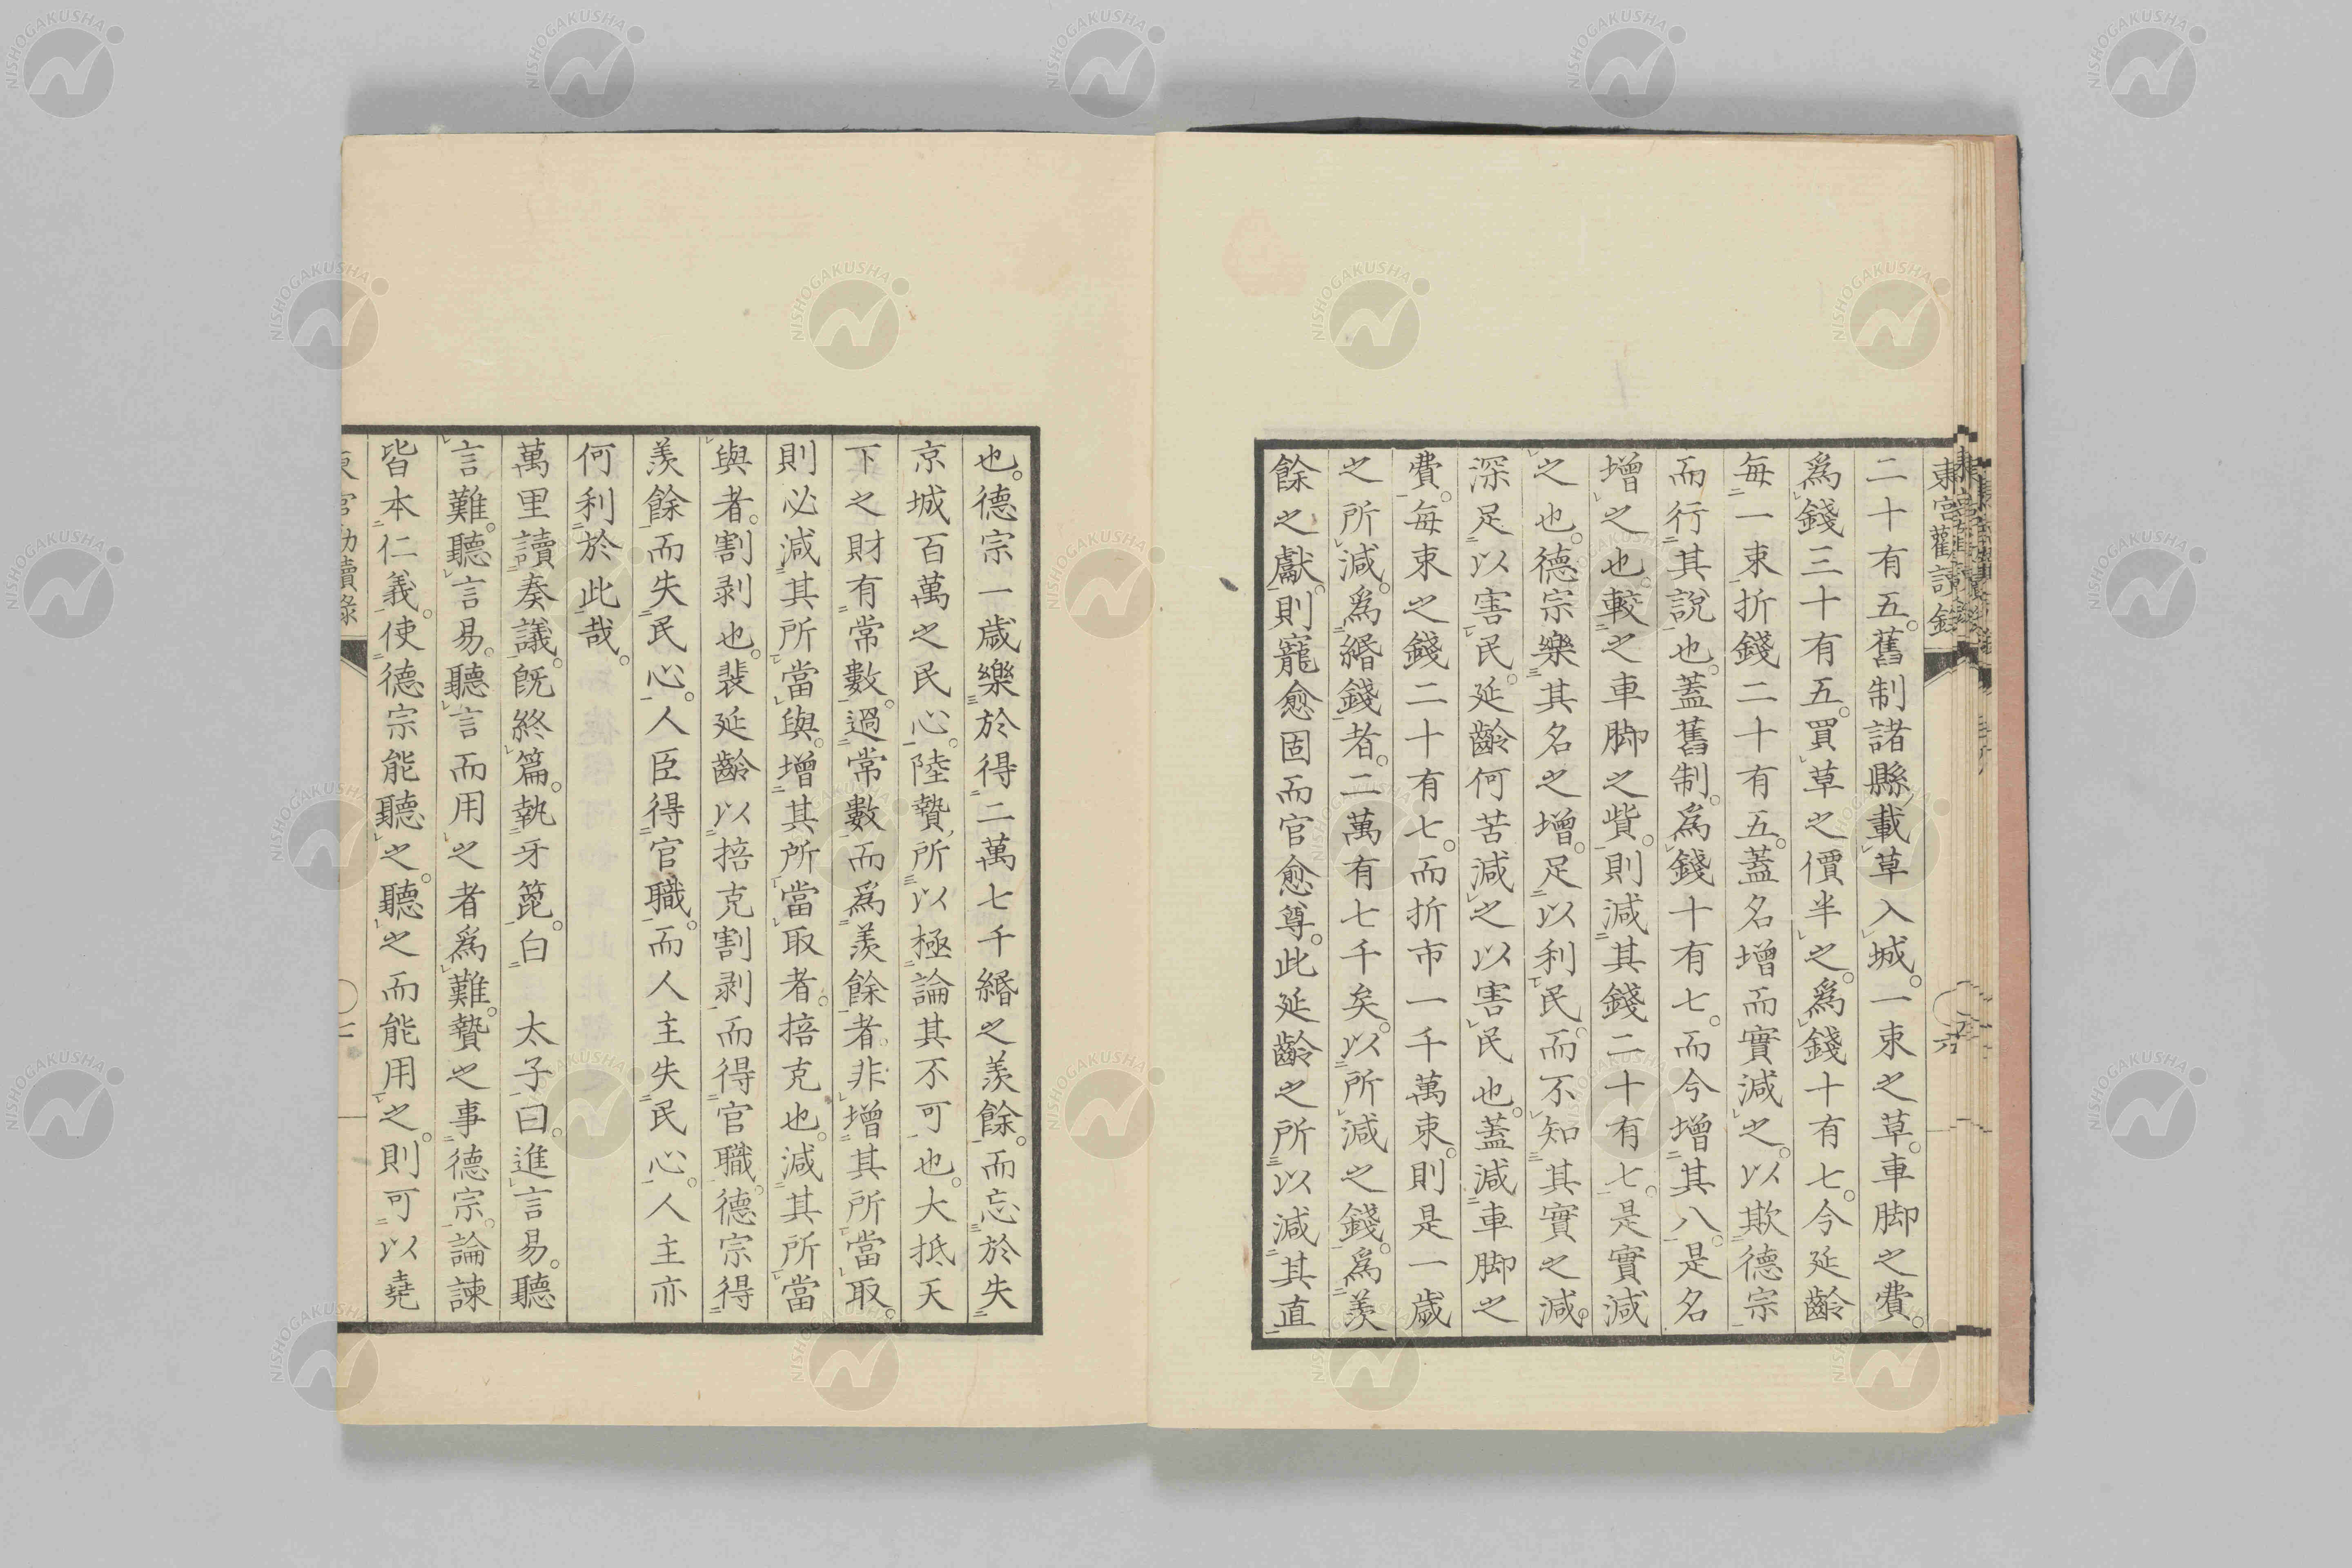 東宮勸讀錄
六
二十有五。舊制諸縣載草入城。一束之草。車脚之費。
爲錢三十有五。買草之價半之。爲錢十有七。今延齡
每一束折錢二十有五。蓋名增而實減之。以欺德宗
而行其說也。蓋舊制。爲錢十有七。而今增其八。是名
增之也。較之車脚之貲。則減其錢二十有七。是實減
之也。德宗樂其名之增。足以利民。而不知其實之減。
深足以害民。延齡何苦減之以害民也。蓋減車脚之
費。每束之錢二十有七。而折市一千萬束。則是一歲
之所減。爲緡錢者。二萬有七千矣。以所減之錢。爲羨
餘之獻。則寵愈固而官愈尊。此延齡之所以減其直
也。德宗一歲樂於得二萬七千緡之羨餘。而忘於失
京城百萬之民心。陸贄所以極論其不可也。大抵天
下之財有常數。過常數而爲羨餘者。非增其所當取。
則必減其所當與。增其所當取者。掊克也。減其所當
與者。割剥也。裴延齡以掊克割剥而得官職。德宗得
羨餘而失民心。人臣得官職。而人主失民心。人主亦
何利於此哉。
萬里讀奏議。旣終篇。執牙箆。白 太子曰。進言易。聽
言難。聽言易。聽言而用之者爲難。贄之事德宗。論諫
皆本仁義。使德宗能聽之。聽之而能用之。則可以堯